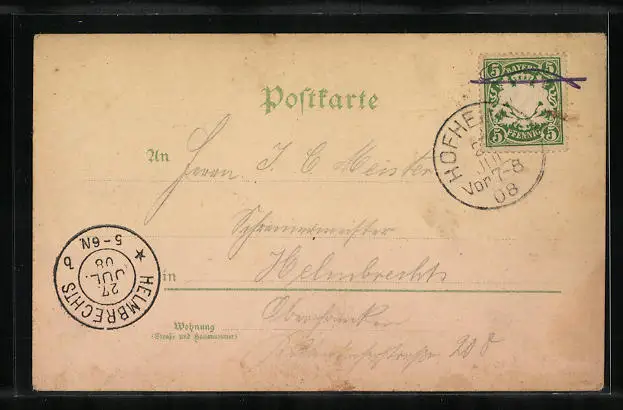 Postkarte
5 BAYERN 5
5 PFENNIG 5
HOFHE
JUL
Vor 7-8
08
An Herrn J. C. Meister
Schreinermeister
in Helmbrechts
Oberfranken
Wohnung
(Straße und Hausnummer)
20
HELMBRECHTS
27
JUL.
08
5-6N.